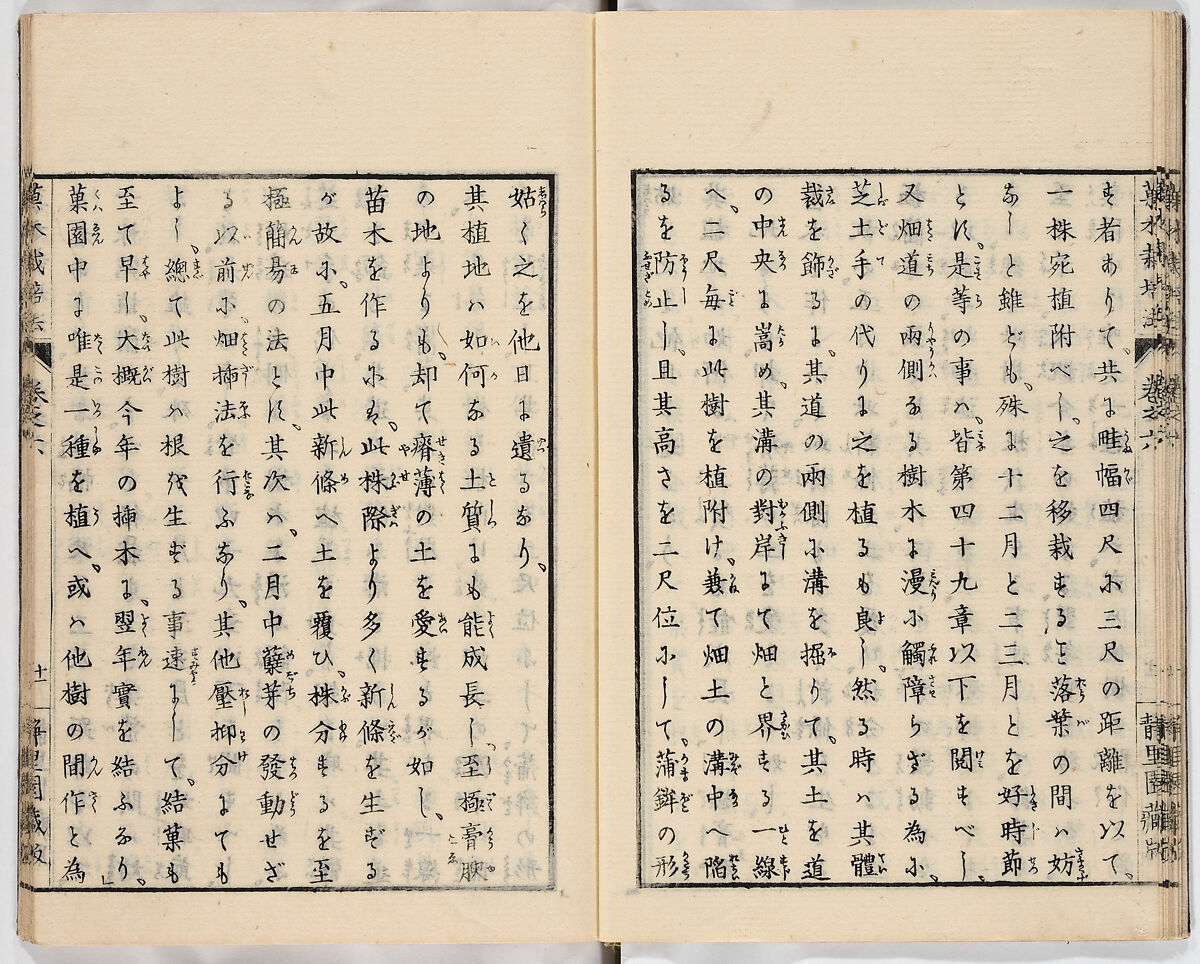 菓木栽培法 卷之六 静里園藏版
ず者ありて、共に畦幅四尺に三尺の距離を以て、
一株宛植附べし、之を移栽するは落葉の間ハ妨
なしと雖ども、殊に十二月と二三月とを好時節
とす、是等の事ハ、皆第四十九章以下を閲すべし、
又畑道の兩側なる樹木に漫に觸障らざる為に、
芝土手の代りに之を植るも良し、然る時ハ其體
裁を飾るに、其道の兩側に溝を掘りて、其土を道
の中央に嵩め、其溝の對岸にて畑と界する一線
へ、二尺毎に此樹を植附け、兼て畑土の溝中へ陷
るを防止し、且其高さを二尺位にして、蒲鉾の形
姑く之を他日に遺るなり、
其植地ハ如何なる土質にも能成長し、至極膏腴
の地よりも、却て瘠薄の土を愛するが如し、
苗木を作るには、此株際より多く新條を生ずる
が故に、五月中此新條へ土を覆ひ、株分するを至
極簡易の法とす、其次ハ、二月中蘖芽の發動せざ
る以前に、畑揷法を行ふなり、其他壓抑分にても
よし、總て此樹ハ根を生ずる事速にして、結菓も
至て早し、大概今年の揷木に、翌年實を結ふなり、
菓園中に唯是一種を植へ、或ハ他樹の間作と為
菓木栽培法 卷之六 十一 静里園藏版